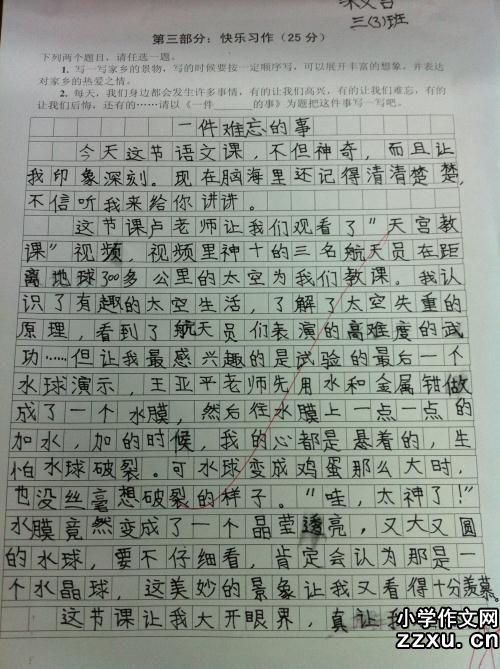 三(3)班
第三部分：快乐习作（25分）
下列两个题目，请任选一题。
1. 写一写家乡的景物，写的时候要按一定顺序写，可以展开丰富的想象，并表达
对家乡的热爱之情。
2. 每天，我们身边都会发生许多事情，有的让我们高兴，有的让我们难忘，有的
让我们后悔，还有的……请以《一件______的事》为题把这件事写一写吧。
一件难忘的事
今天这节语文课，不但神奇，而且让
我印象深刻。现在脑海里还记得清清楚楚，
不信听我来给你讲讲。
这节课卢老师让我们观看了“天宫教
课”视频，视频里神十的三名航天员在距
离地球300多公里的太空为我们教课。我认
识了有趣的太空生活，了解了太空失重的
原理，看到了航天员们表演的高难度的武
功……但让我最感兴趣的是试验的最后一个
水球演示，王亚平老师先用水和金属钳做
成了一个水膜，然后往水膜上一点一点的
加水，加的时候，我的心都是悬着的，生
怕水球破裂。可水球变成鸡蛋那么大时，
也没丝毫想破裂的样子。“哇，太神了！”
水膜竟然变成了一个晶莹透亮，又大又圆
的水球，要不仔细看，肯定会认为那是一
个水晶球，这美妙的景象让我又看得十分羡慕。
这节课让我大开眼界，真让我
小学作文网
zzxu.cn